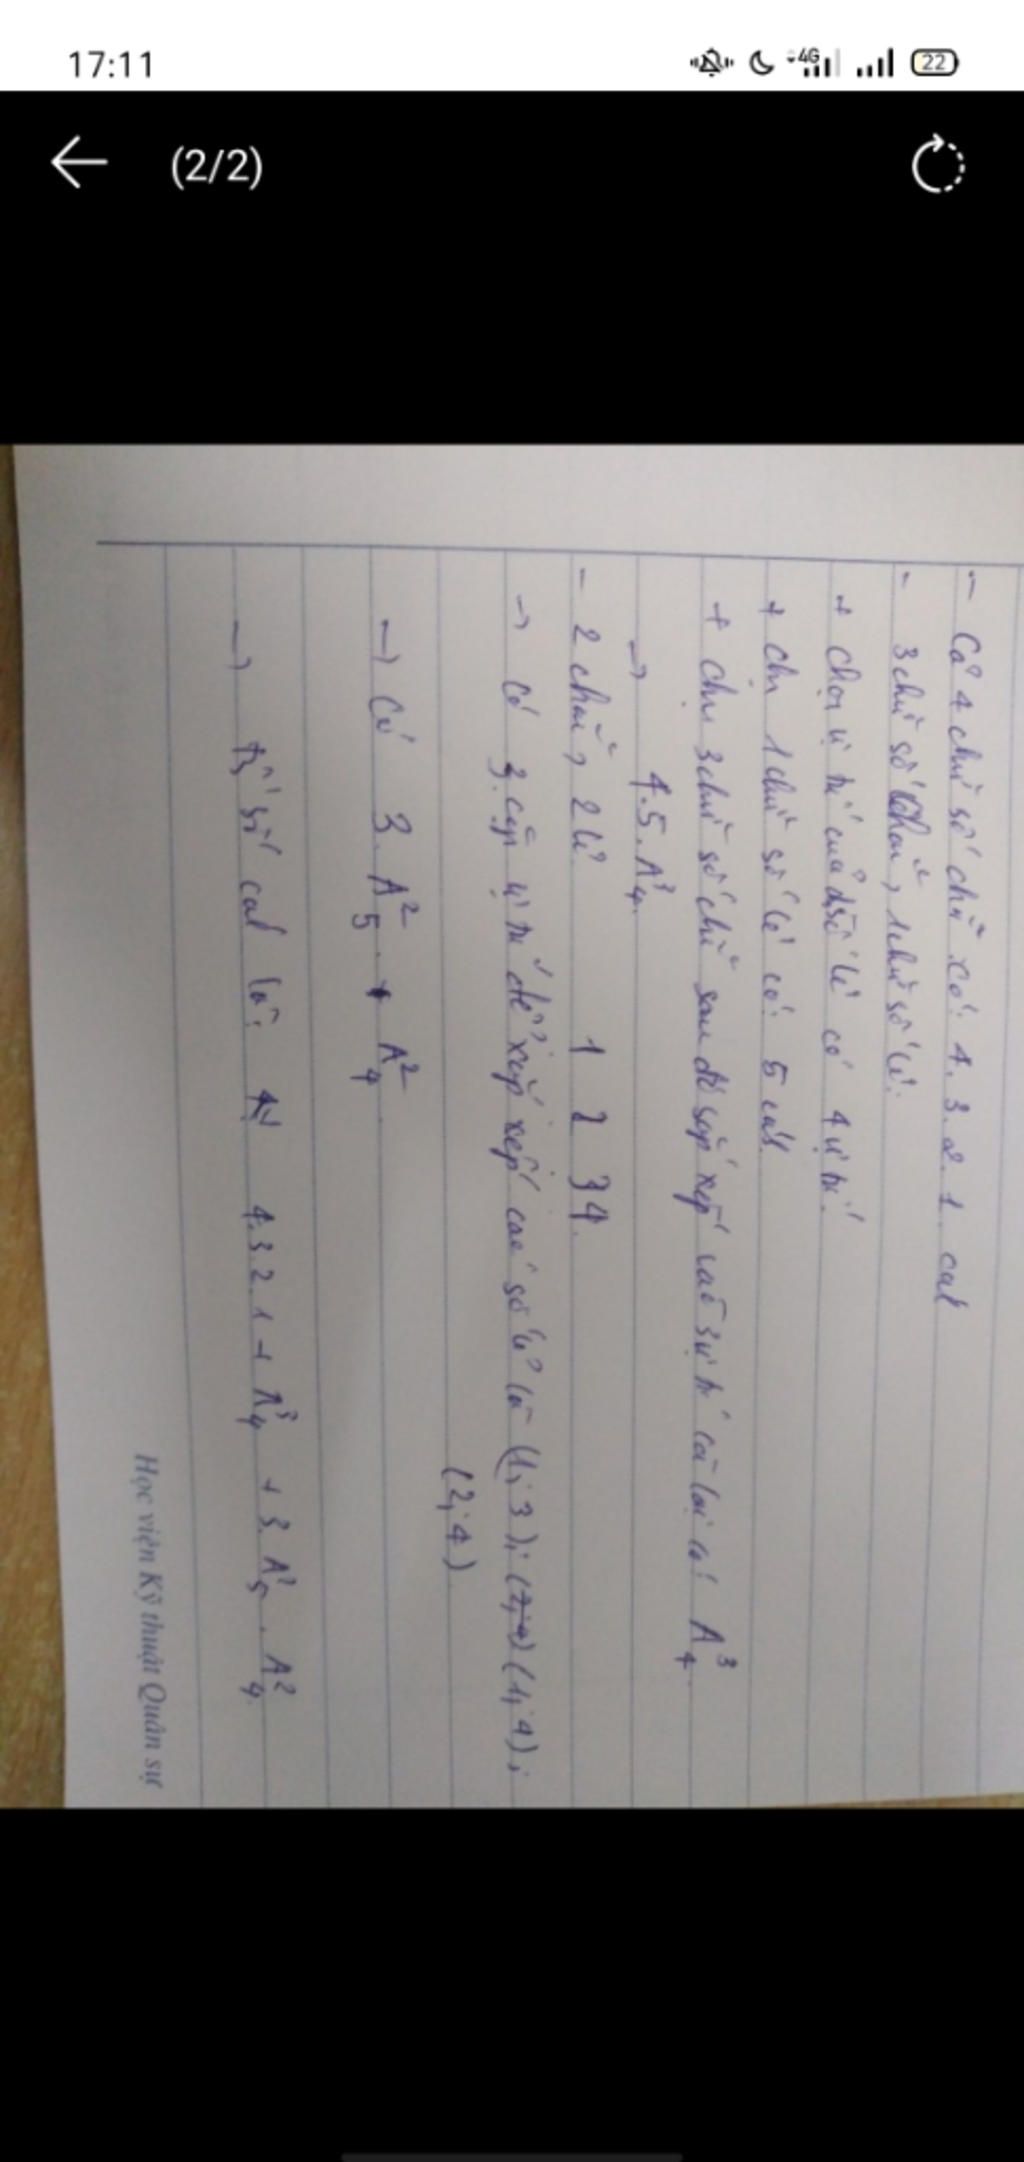 17:11
4G
22
(2/2)
- Cả 4 chữ số chẵn có: 4.3.2.1 cách
- 3 chữ số chẵn, 1 chữ số lẻ:
+ chọn vị trí của số lẻ có 4 vị trí
+ chọn 1 chữ số lẻ có: 5 cách
+ chọn 3 chữ số chẵn sau đó sắp xếp vào 3 vị trí còn lại có: A³₄
→ 4.5.A³₄.
- 2 chẵn, 2 lẻ 1 2 3 4.
→ có 3 cặp vị trí để xếp các số lẻ là (1;3); (1;4);
(2;4)
→ Có 3.A²₅.A²₄
→ số cách là: 4.3.2.1 + A³₄ + 3.A²₅.A²₄.
Học viện Kỹ thuật Quân sự